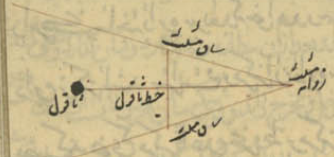 ساق مثلث
زوانه مثلث
خيط شاقول
شاقول
ساق مثلث